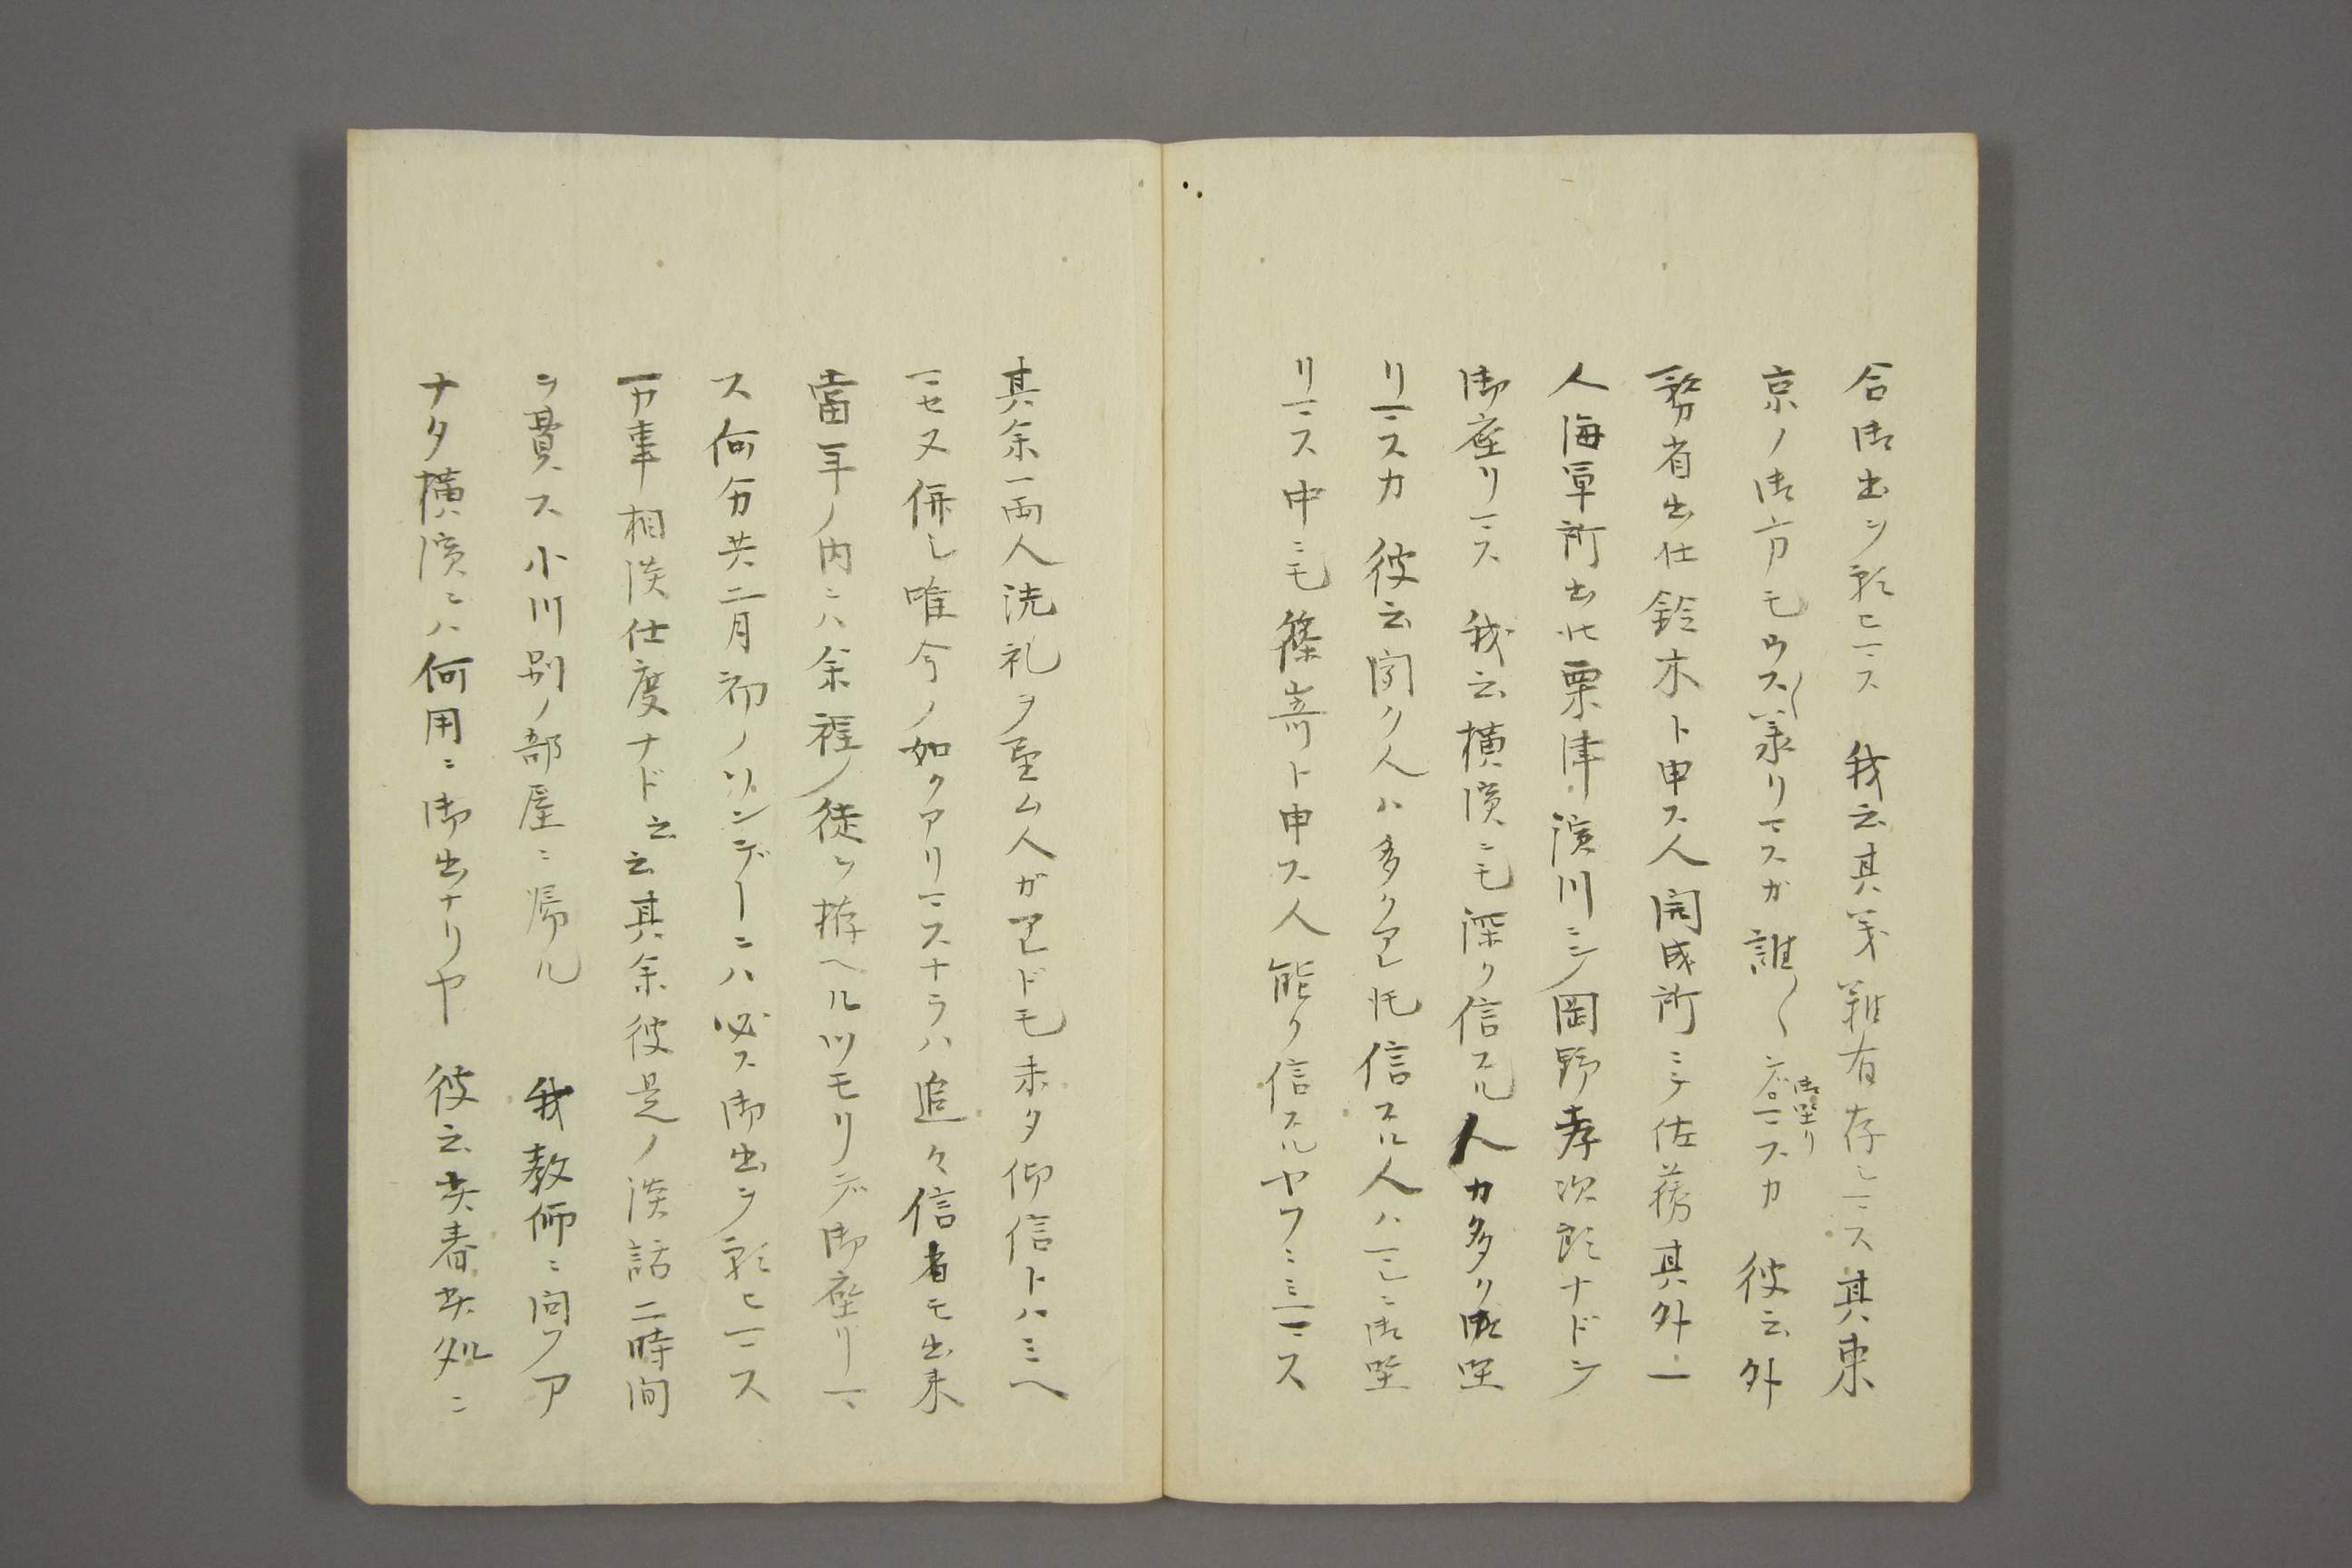 合御出ヲ願ヒマス　我云其义難有存シマス其東
京ノ御方モウス〱承リマスガ誰〱デ御坐リマスカ　彼云外
務省出仕鈴木ト申ス人開成所ニテ佐藤其外一
人海軍所出仕粟津濱川ニシ岡野孝次郎ナドヽ
御座リマス　我云横濱ニモ深ク信スル人カ多ク御坐
リマスカ　彼云聞ク人ハ多クアレ𪜈信スル人ハマレニ御坐
リマス中ニモ篠嵜ト申ス人能ク信スルヤフニミマス
其余一両人洗礼ヲ望ム人ガアレドモ未タ仰信トハミヘ
マセヌ併シ唯今ノ如クアリマスナラハ追々信者モ出来
當年ノ内ニハ余程ノ徒ヲ拵ヘルツモリデ御座リマ
ス何分共二月初ノソンデーニハ必ス御出ヲ願ヒマス
万事相談仕度ナド云云其余彼是ノ談話二時間
ヲ費ス小川別ノ部屋ニ帰ル　我教師ニ向フア
ナタ横濱ニハ何用ニ御出ナリヤ　彼云去春去処ニ